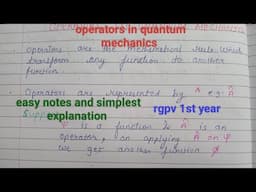 operators in quantum
mechanics
operators are the mathematical rule which
transform any function to another
function
operators are represented by ^ e.g.
easy notes and simplest
explanation
rgpv 1st year
ψ is a function & Â is an
operator, on applying Â on ψ
we get another function φ